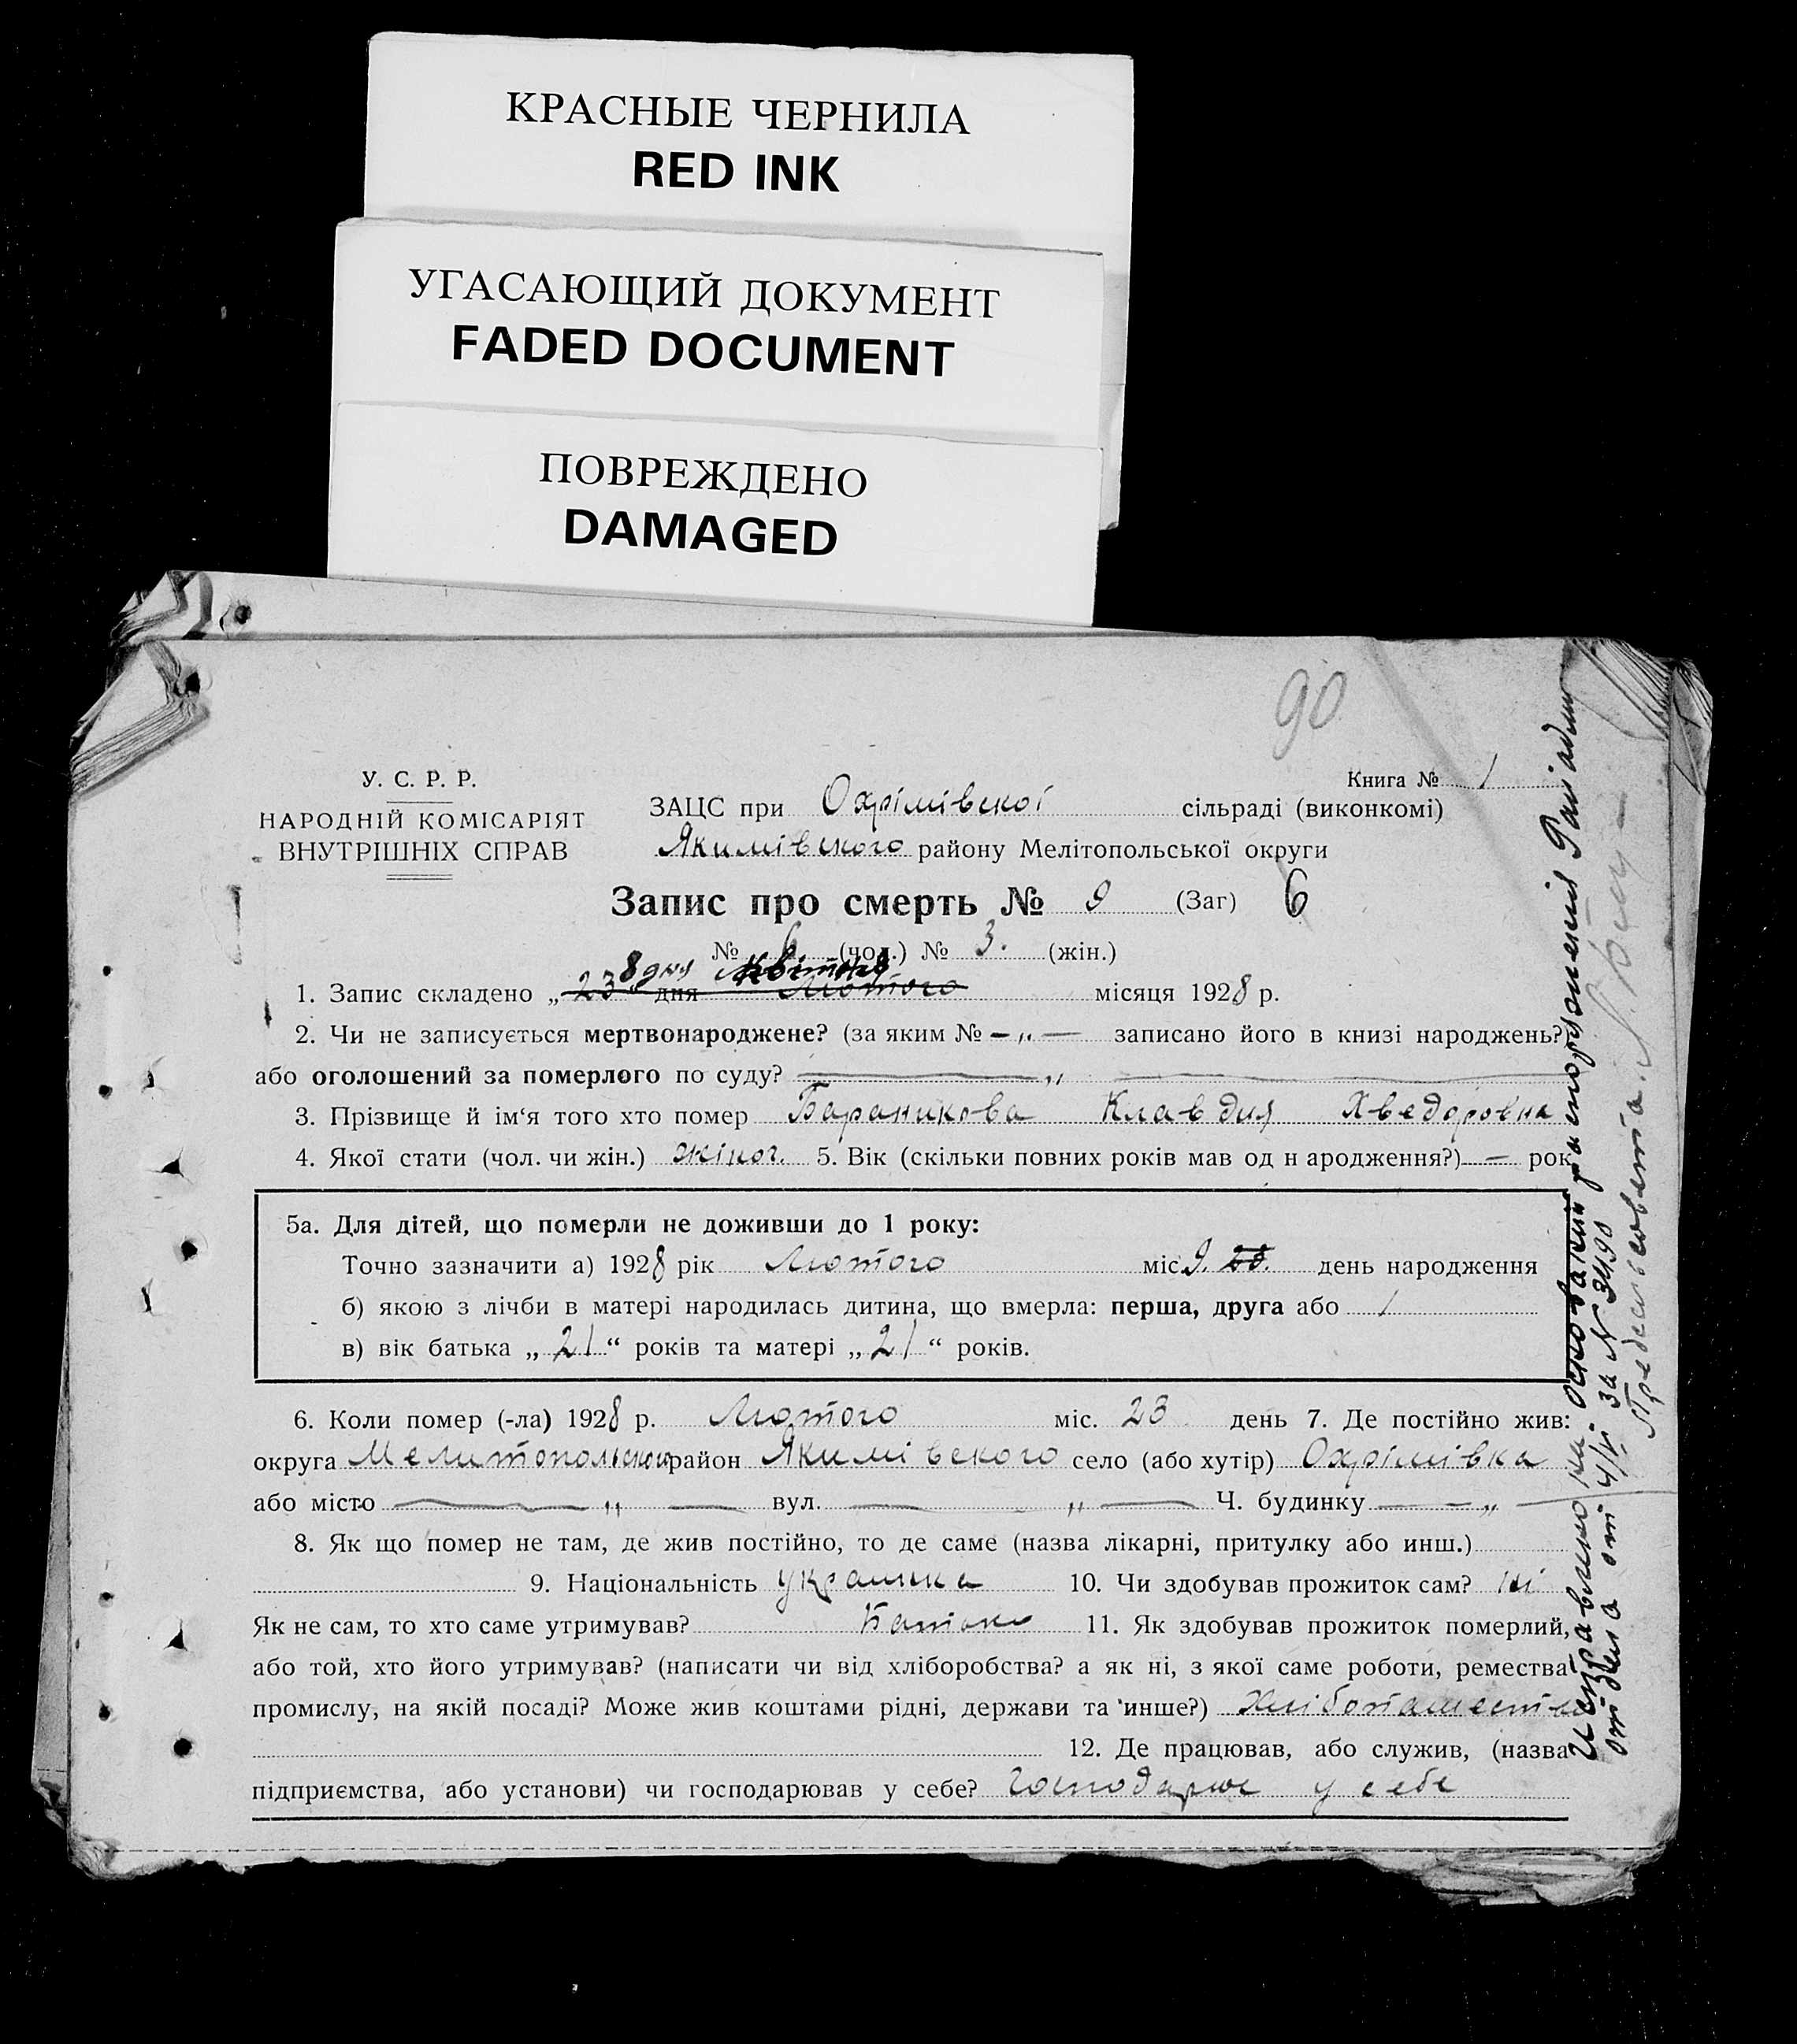 КРАСНЫЕ ЧЕРНИЛА
RED INK
УГАСАЮЩИЙ ДОКУМЕНТ
FADED DOCUMENT
ПОВРЕЖДЕНО
DAMAGED
90
У. С. Р. Р.
НАРОДНІЙ КОМІСАРІЯТ
ВНУТРІШНІХ СПРАВ
Книга № 1
ЗАЦС при Охрімівскої сільраді (виконкомі)
Якимівского району Мелітопольської округи
Запис про смерть № 9 (Заг) 6
№ 6 (чол.) № 3. (жін.)
8 дня Квітня
1. Запис складено „ 23 " дня Лютого місяця 1928 р.
2. Чи не записується мертвонароджене? (за яким № — „ — записано його в книзі народжень?)
або оголошений за померлого по суду? — „ —
3. Прізвище й ім‘я того хто помер Бараникова Клавдия Хведоровна
4. Якої стати (чол. чи жін.) жіноч. 5. Вік (скільки повних років мав од н ародження?) — рок
5а. Для дітей, що померли не доживши до 1 року:
Точно зазначити а) 1928 рік Лютого міс 9. 28. день народження
б) якою з лічби в матері народилась дитина, що вмерла: перша, друга або 1
в) вік батька „ 21 “ років та матері „ 21 “ років.
6. Коли помер (-ла) 1928 р. Лютого міс. 23 день 7. Де постійно жив:
округа Мелитопольского район Якимівского село (або хутір) Охрімівка
або місто — „ — вул. — „ — Ч. будинку — „ —
8. Як що помер не там, де жив постійно, то де саме (назва лікарні, притулку або инш.)
9. Національність украинка 10. Чи здобував прожиток сам? ні
Як не сам, то хто саме утримував? Батько 11. Як здобував прожиток померлий,
або той, хто його утримував? (написати чи від хліборобства? а як ні, з якої саме роботи, ремества
промислу, на якій посаді? Може жив коштами рідні, держави та инше?) Хліботашество
12. Де працював, або служив, (назва
підприємства, або установи) чи господарював у себе? Господарює у себе
Исправлено на основании распоряжения
отдела от 4/IV за N 3490
Предсельсовета